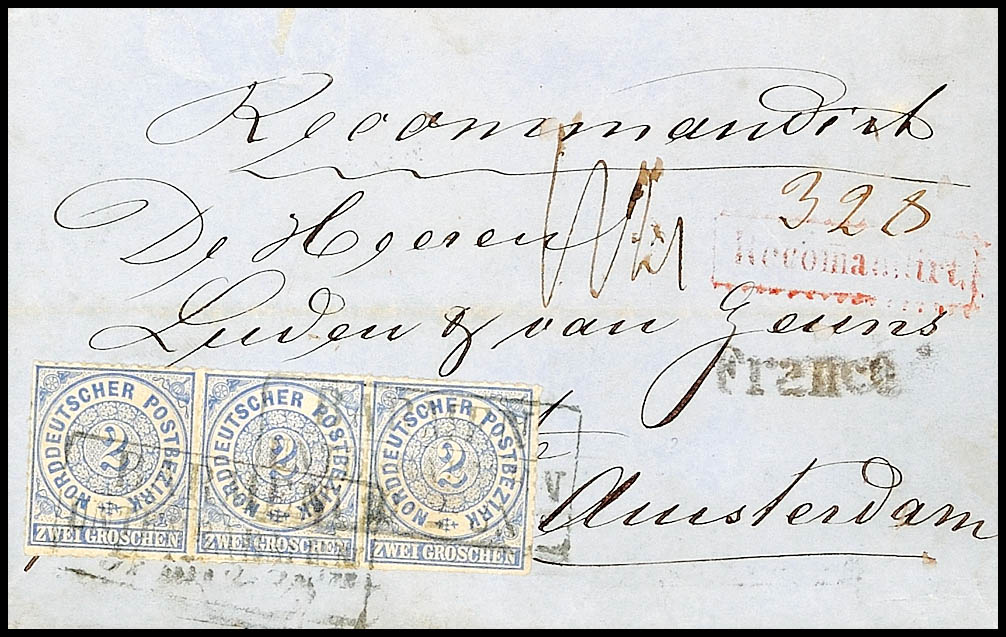 Recommandirt
328
Recomandirt.
De Heeren
Luden & van Geuns
Franco
te
Amsterdam
NORDDEUTSCHER POSTBEZIRK
2
ZWEI GROSCHEN
NORDDEUTSCHER POSTBEZIRK
2
ZWEI GROSCHEN
NORDDEUTSCHER POSTBEZIRK
2
ZWEI GROSCHEN